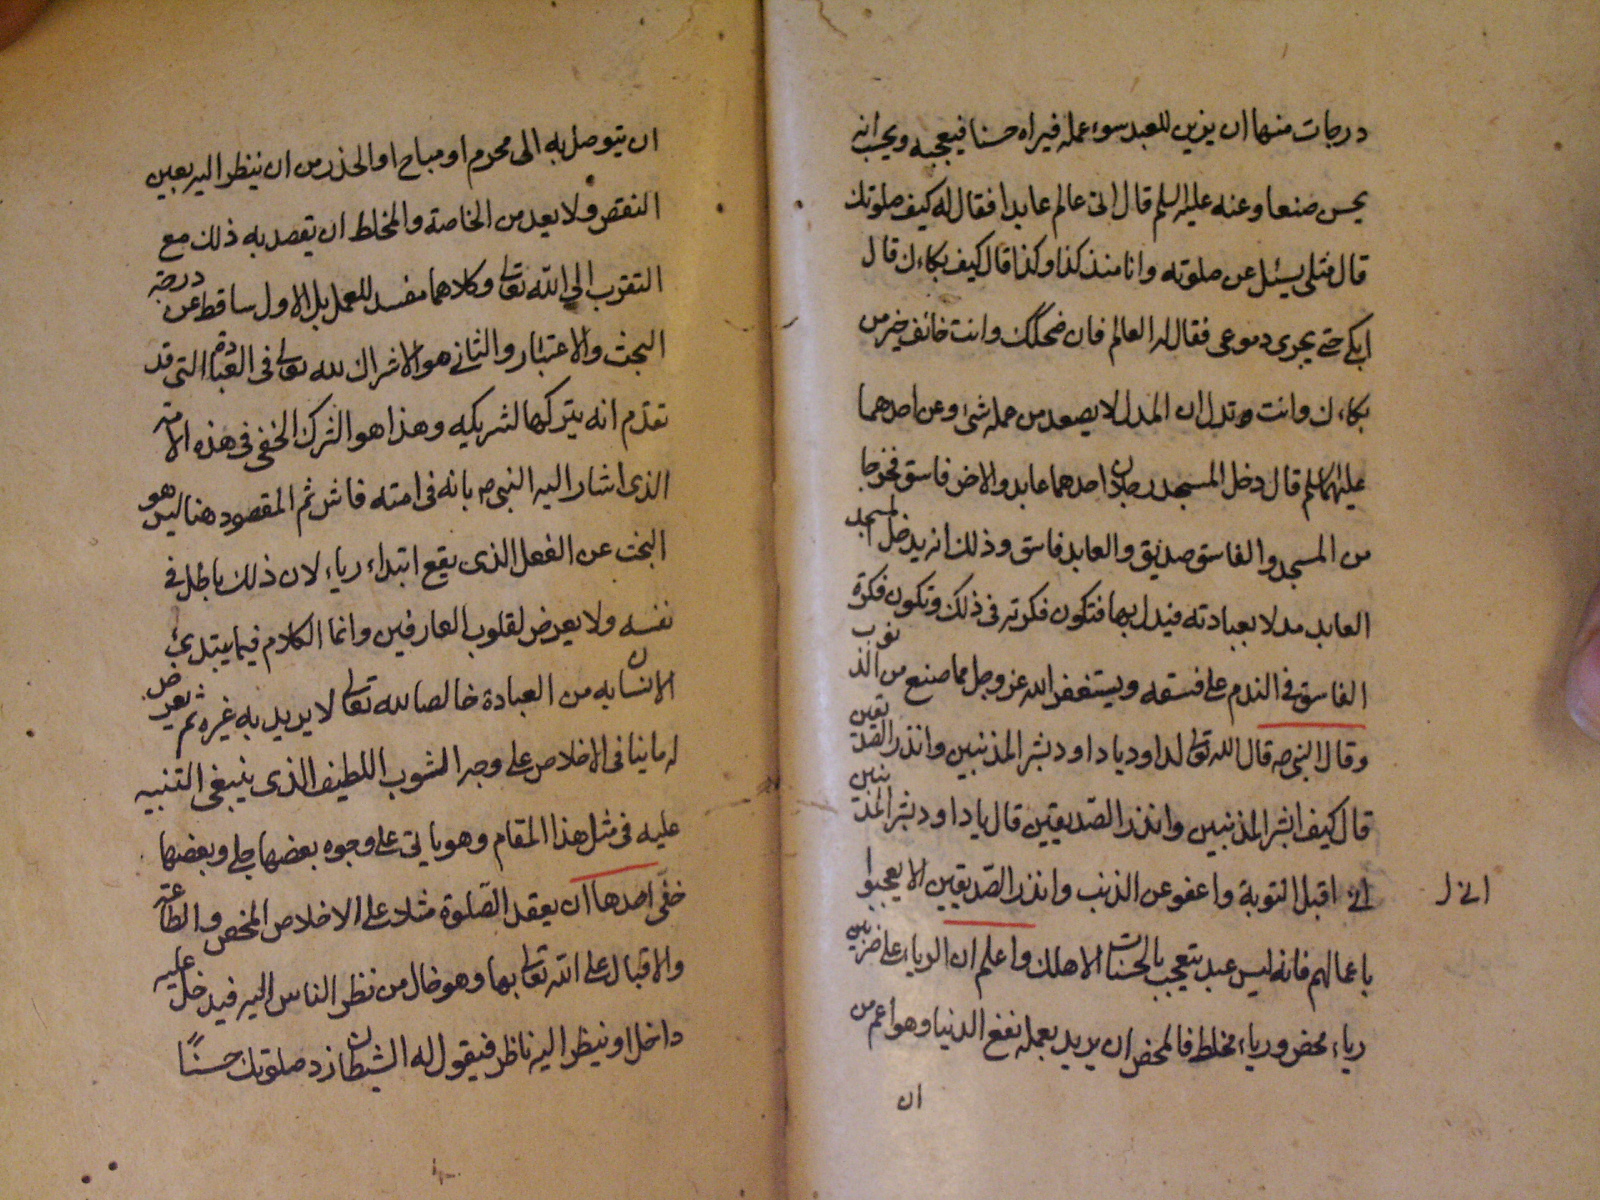 درجات منها ان يزين للعبد سوء عمله فيراه حسنا فيعجبه ويحسب انه
يحسن صنعا وعنه عليه السلم قال اتى عالم عابدا فقال له كيف صلوتك
قال مثلى يسئل عن صلوته وانا منذ كذا وكذا قال كيف بكاءك قال
ابكى حتى يجرى دموعى فقال له العالم فان ضحكك وانت خائف خير من
بكاءك وانت مدل ان المدل لا يصعد من عمله شئ وعن احدهما
عليهما السلم قال دخل المسجد رجلان احدهما عابد والاخر فاسق فخرجا
من المسجد والفاسق صديق والعابد فاسق وذلك انه يدخل المسجد
العابد مدلا بعبادته فيدل بها فتكون فكرته فى ذلك وتكون فكرة
الفاسق فى الندم على فسقه ويستغفر الله عز وجل مما صنع من الذنوب
وقال النبى ص قال الله تعالى لداود يا داود بشر المذنبين وانذر الصديقين
قال كيف ابشر المذنبين وانذر الصديقين قال يا داود بشر المذنبين
انى اقبل التوبة واعفو عن الذنب وانذر الصديقين الا يعجبوا
باعمالهم فانه ليس عبد يتعجب بالحسنات الا هلك واعلم ان الرياء على ضربين
رياء محض ورياء مخلط فالمحض ان يريد بعمله نفع الدنيا وهو اعم من
ان
ان يتوصل به الى محرم او مباح او الحذر من ان ينظر اليه بعين
النقص ولا يعد من الخاصة والمخلط ان يقصد به ذلك مع
التقرب الى الله تعالى وكلاهما مفسد للعمل بل الاول ساقط عن درجة
البحث والاعتبار والثانى هو الاشراك لله تعالى فى العبادة التى قد
تقدم انه يتركها لشريكيه وهذا هو الشرك الخفى فى هذه الامة
الذى اشار اليه النبى ص بانه فى امته فاش ثم المقصود هنا ليس هو
البحث عن الفعل الذى يقع ابتداء رياء لان ذلك باطل فى
نفسه ولا يعرض لقلوب العارفين وانما الكلام فيما يبتدئ
الانسان به من العبادة خالصا لله تعالى لا يريد به غيره ثم يعرض
له ما ينافى الاخلاص على وجه الشوب اللطيف الذى ينبغى التنبيه
عليه فى مثل هذا المقام وهو ياتى على وجوه بعضها جلى وبعضها
خفى احدها ان يعقد الصلوة مثلا على الاخلاص المحض والطاعة
والاقبال على الله تعالى بها وهو خال من نظر الناس اليه فيدخل عليه
داخل او ينظر اليه ناظر فيقول له الشيطان زد صلوتك حسنًا